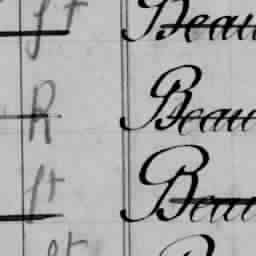 ft Beau
R Beau
ft Beau